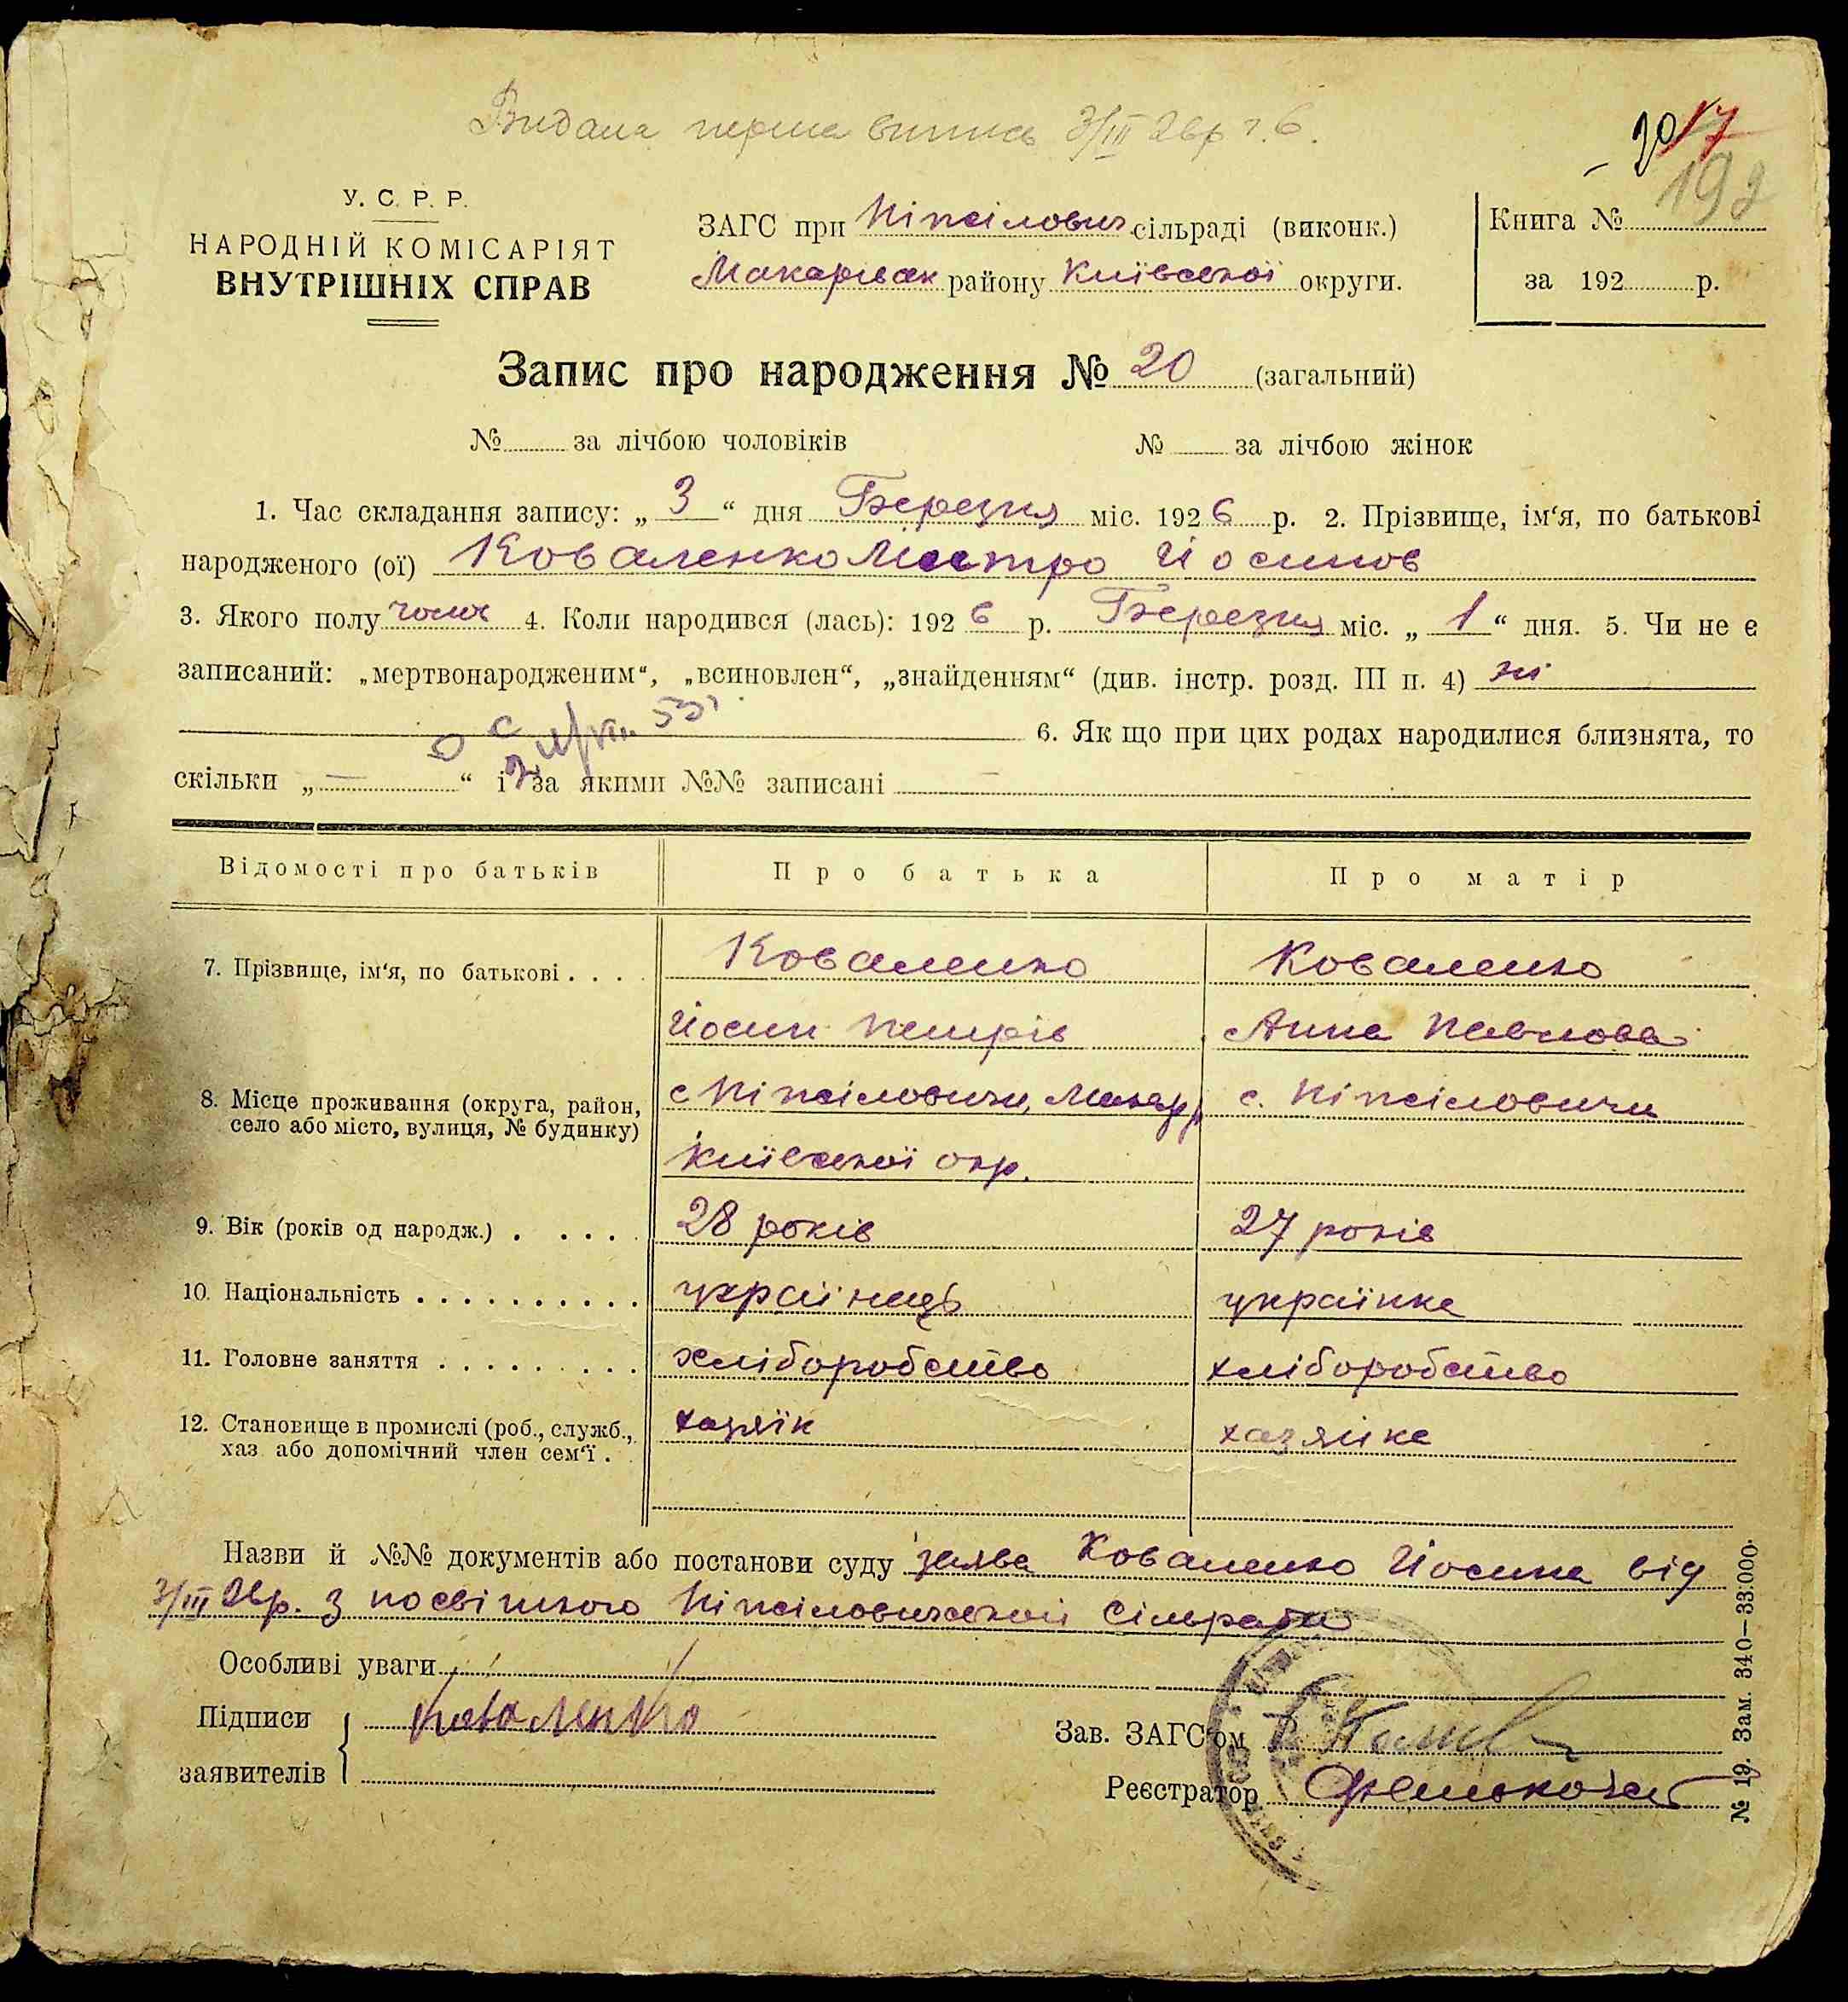 Видана перша випись 3/III 26р г. 6.
20 17
192
У. С. Р. Р.
НАРОДНІЙ КОМІСАРІЯТ
ВНУТРІШНІХ СПРАВ
ЗАГС при Ніпсілович сільраді (виконк.)
Макарівськ району Київської округи.
Книга №
за 192 р.
Запис про народження № 20 (загальний)
№ за лічбою чоловіків № за лічбою жінок
1. Час складання запису: „ 3 “ дня Березня міс. 192 6 р. 2. Прізвище, ім‘я, по батькові
народженого (ої) Коваленко Йосипов
3. Якого полу чолов 4. Коли народився (лась): 192 6 р. Березня міс. „ 1 “ дня. 5. Чи не є
записаний: „мертвонародженим“, „всиновлен“, „знайденням“ (див. інстр. розд. III п. 4) ні
6. Як що при цих родах народилися близнята, то
скільки „ — “ і за якими №№ записані —
Відомості про батьків Про батька Про матір
7. Прізвище, ім‘я, по батькові . . . . Коваленко Коваленко
Йосип Петрів Анна Павлова
8. Місце проживання (округа, район, с Ніпсіловичи, Макар р с. Ніпсіловичи
село або місто, вулиця, № будинку)
Київської окр.
9. Вік (років од народж.) . . . . . 28 років 27 років
10. Національність . . . . . . . . . . українець українка
11. Головне заняття . . . . . . . . . хліборобство хліборобство
12. Становище в промислі (роб., служб., хазяїн хазяйка
хаз або допомічний член сем‘ї . .
Назви й №№ документів або постанови суду заява Коваленко Йосипа від
3/III 26р. з посвідкою Ніпсіловичської Сільради
Особливі уваги
Підписи Коваленко
заявителів
Зав. ЗАГС‘ом
Реєстратор
№ 19. Зам. 340—33.000.